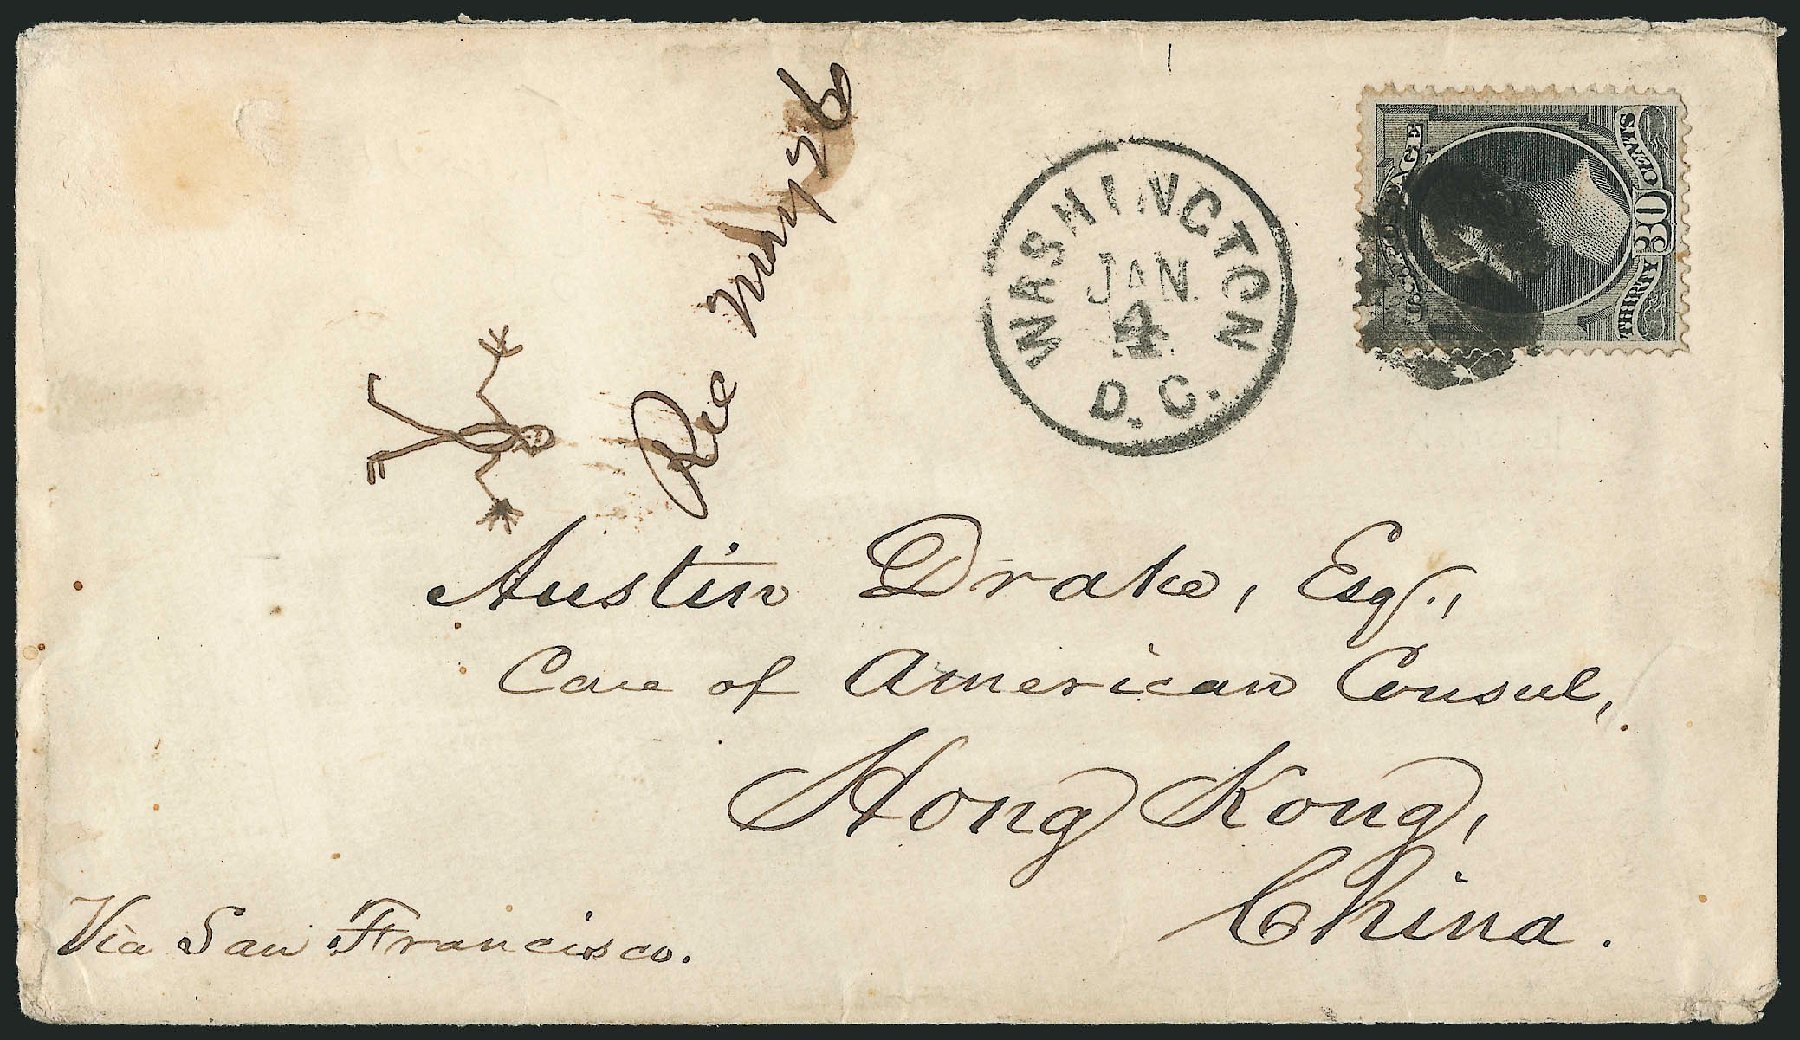 Rec
WASHINGTON
JAN.
4
D.C.
POSTAGE
THIRTY 30 CENTS
Austin Drake, Esq.,
Care of American Consul,
Hong Kong,
China.
Via San Francisco.